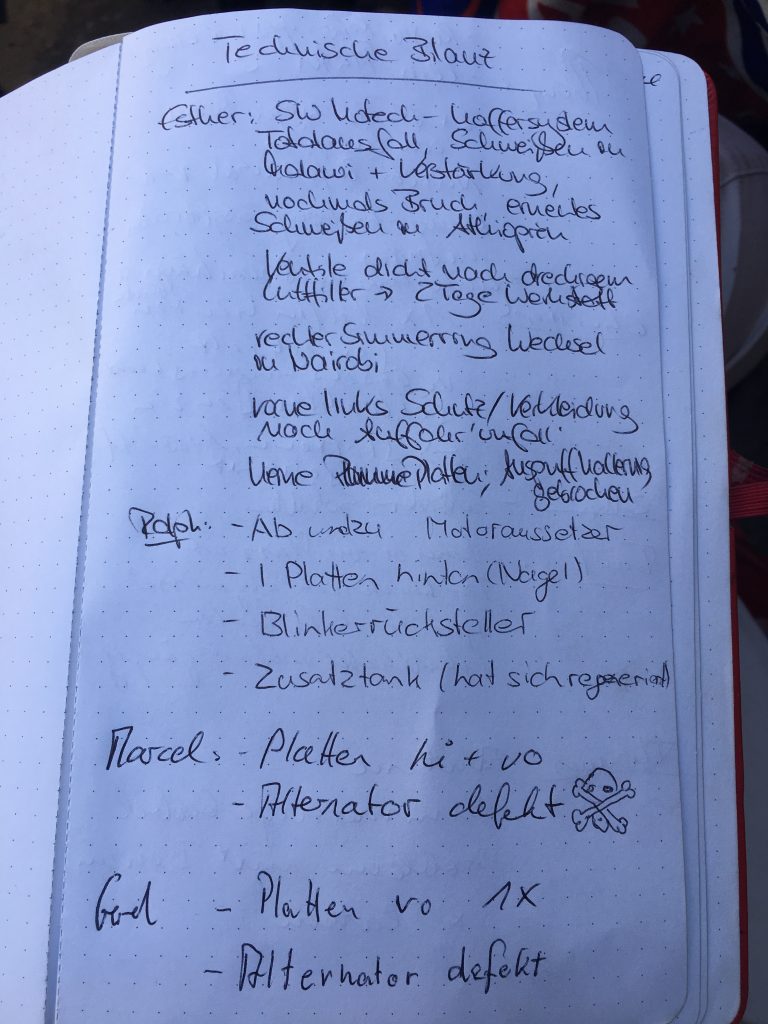 Technische Bilanz
Esther: SW Motech - Koffersystem
Totalausfall, Schweißen in
Malawi + Verstärkung,
nochmals Bruch, erneutes
Schweißen in Äthiopien
Ventile dicht nach dreckigem
Luftfilter → 2 Tage Werkstatt
rechter Simmerring Wechsel
in Nairobi
vorne links Schutz/Verkleidung
nach Auffahr'unfall'
keine Platten; Auspuffhalterung
gebrochen
Ralph: - Ab und zu Motoraussetzer
- 1 Platten hinten (Nagel)
- Blinkerrücksteller
- Zusatztank (hat sich regeneriert)
Marcel: - Platten hi + vo
- Alternator defekt
Gerd - Platten vo 1x
- Alternator defekt